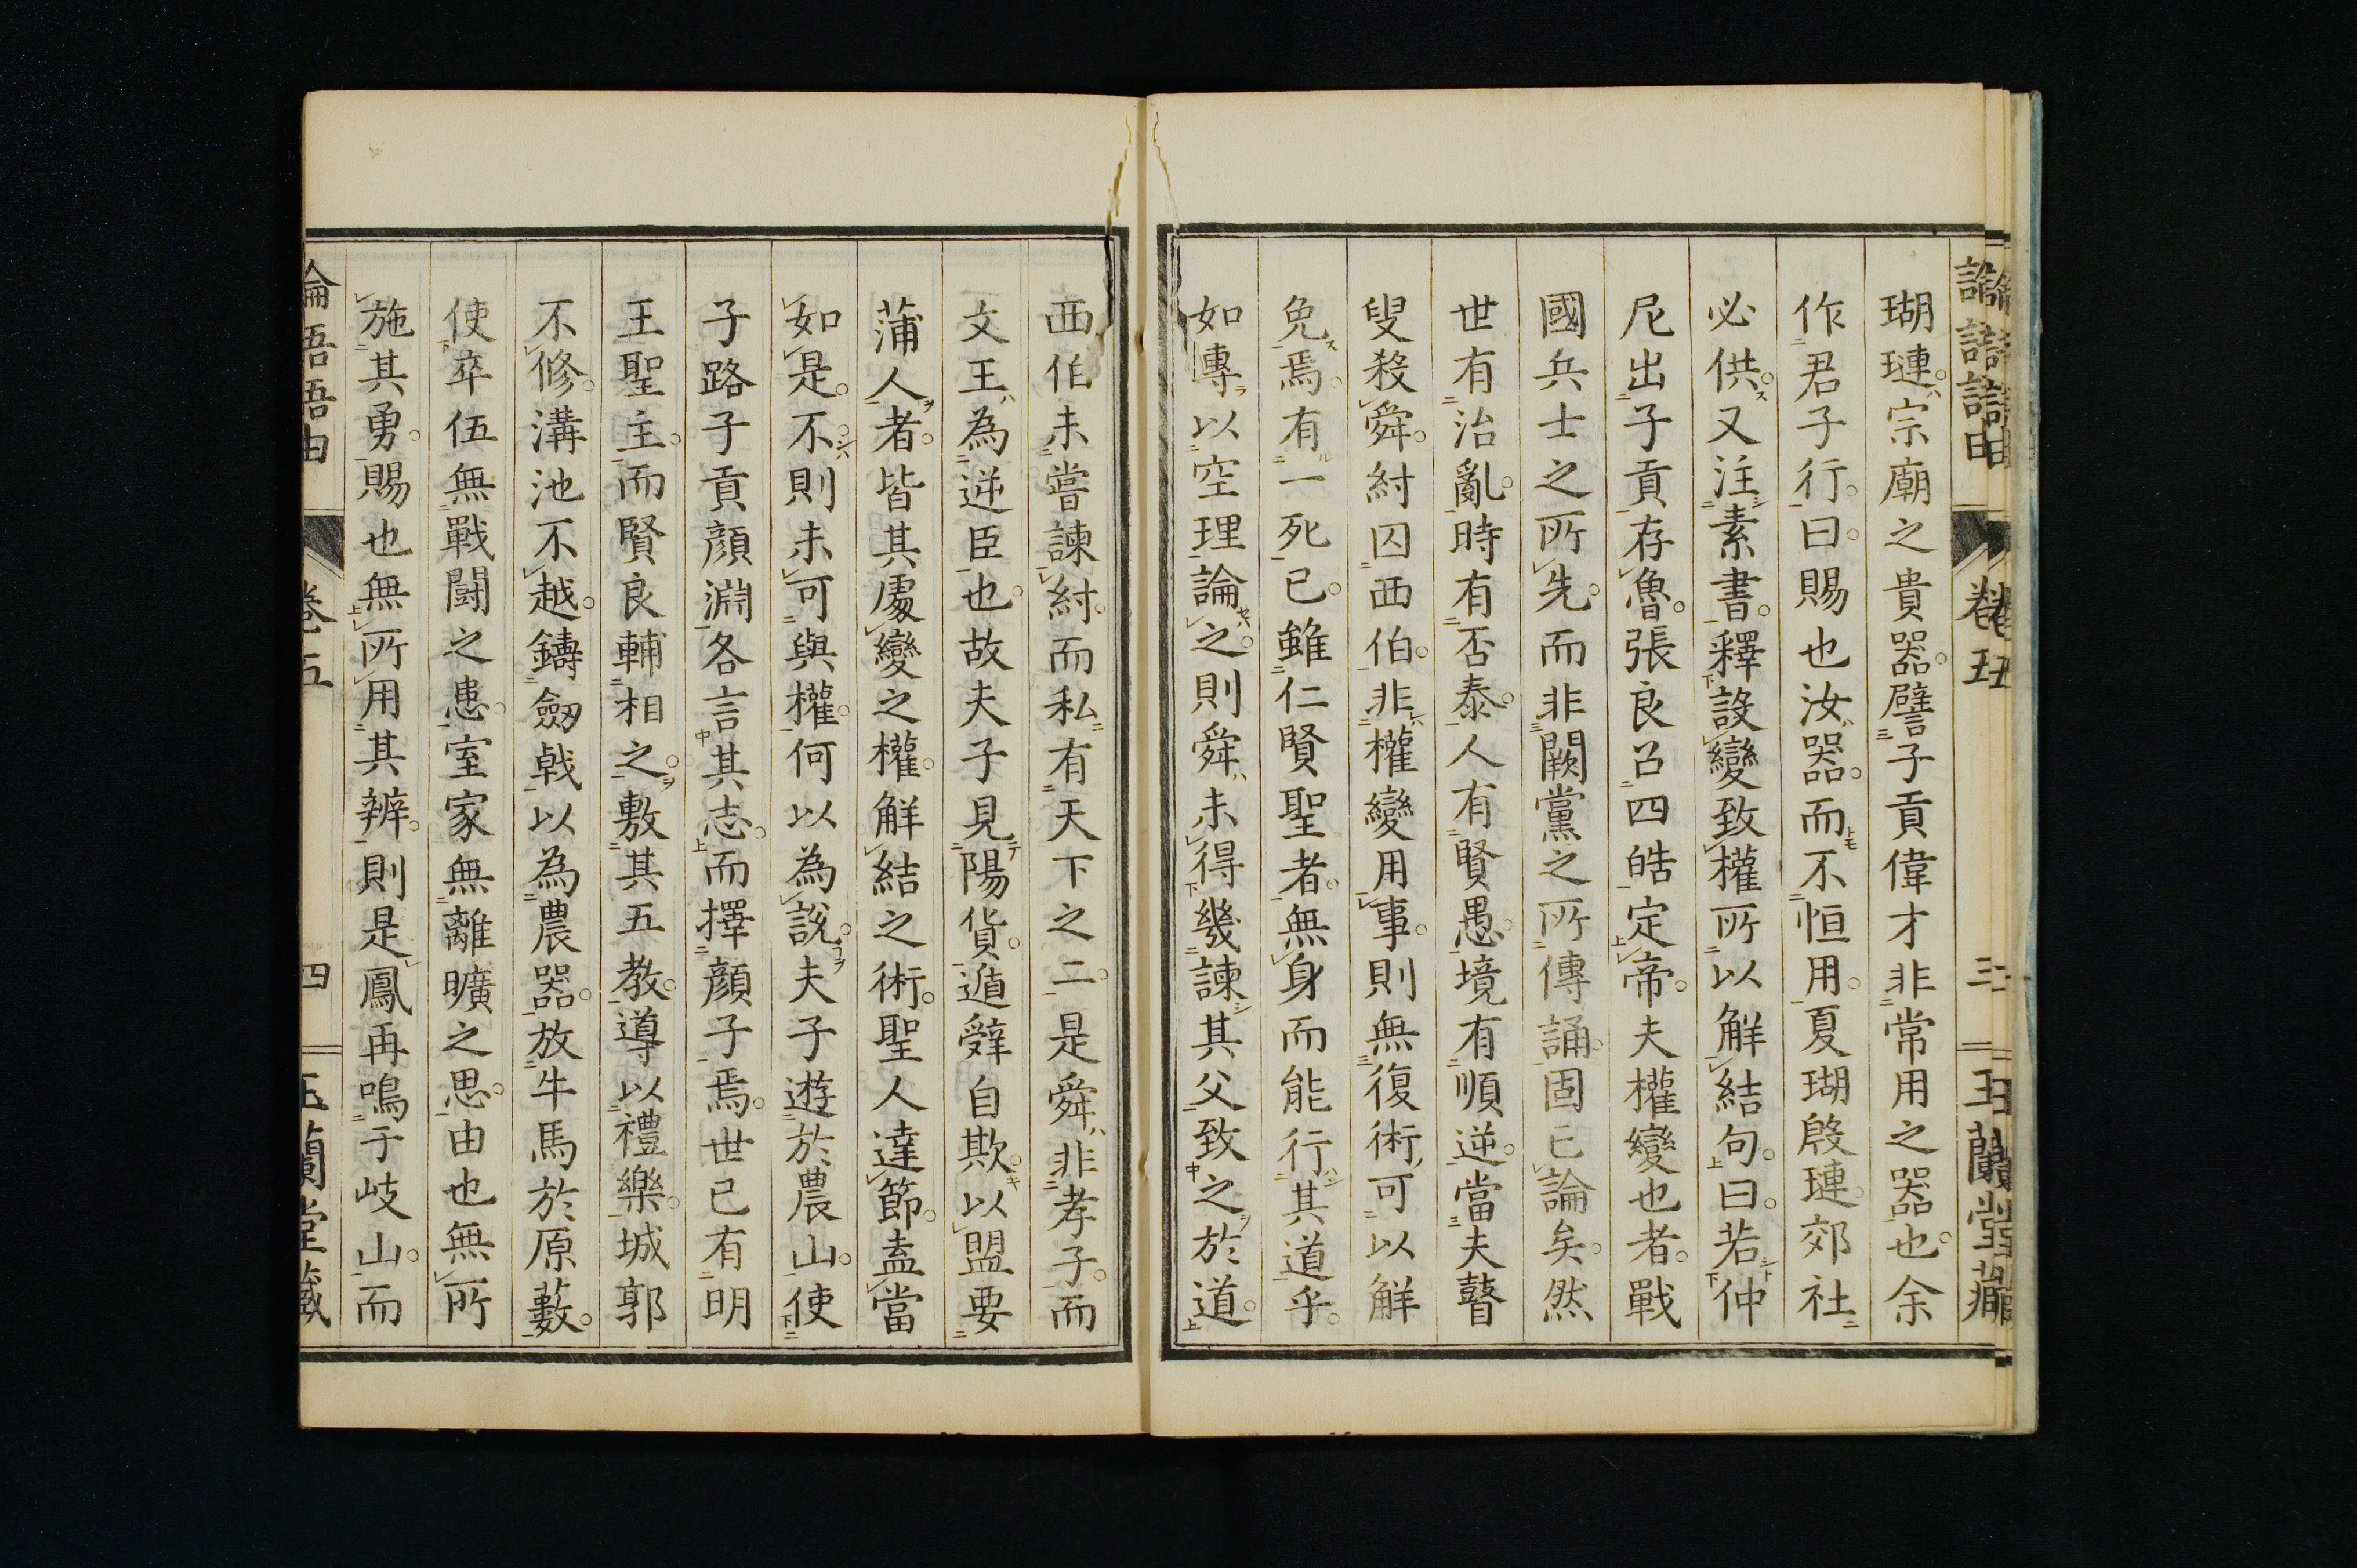 瑚璉宗廟之貴器譬子貢偉才非常用之器也余
作君子行曰賜也汝器而不恒用夏瑚殷璉郊社
必供又注素書釋設變致權所以解結句曰若仲
尼出子貢存魯張良召四皓定帝夫權變也者戰
國兵士之所先而非闕黨之所傳誦固已論矣然
世有治亂時有否泰人有賢愚境有順逆當夫瞽
叟殺舜紂囚西伯非權變用事則無復術可以解
免焉有一死已雖仁賢聖者無身而能行其道乎
如傳以空理論之則舜未得幾諫其父致之於道
西伯未嘗諫紂而私有天下之二是舜非孝子而
文王為逆臣也故夫子見陽貨遁辭自欺以盟要
蒲人者皆其處變之權解結之術聖人達節盍當
如是不則未可與權何以為說夫子遊於農山使
子路子貢顏淵各言其志而擇顏子焉世已有明
王聖主而賢良輔相之敷其五教導以禮樂城郭
不修溝池不越鑄劔戟以為農器放牛馬於原藪
使卒伍無戰鬪之患室家無離曠之思由也無所
施其勇賜也無所用其辨則是鳳再鳴于岐山而
論語語由 卷五 四 玉蘭堂藏